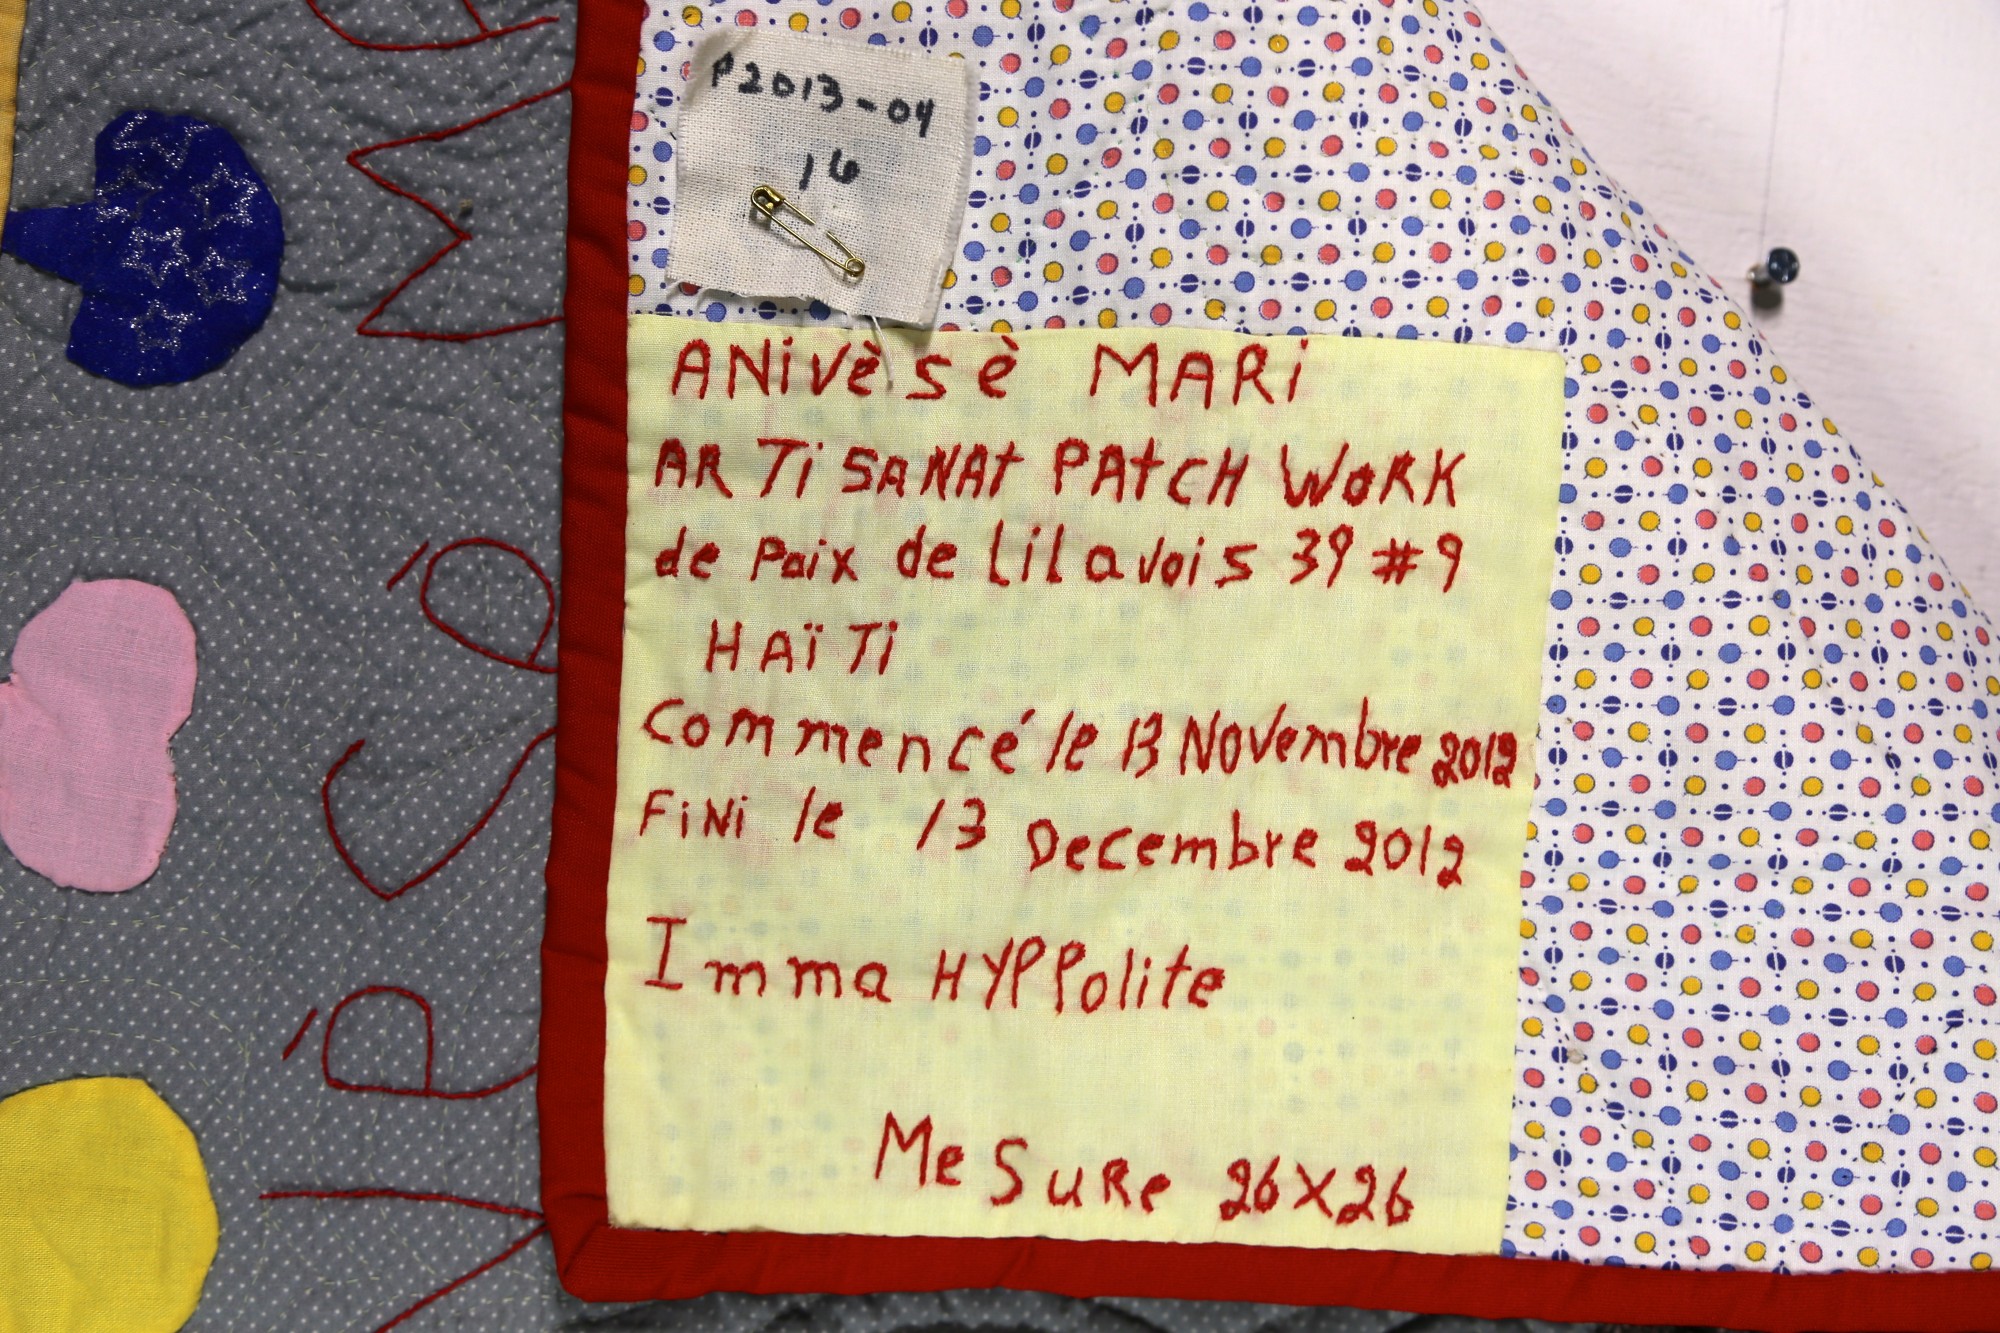 P2013-04
16
ANiVèSè MARi
ARTiSANAt PAtCH WORK
de Paix de Lilavois 39 #9
HAïTi
Commencé le 13 Novembre 2012
FiNi le 13 Decembre 2012
Imma HYPPolite
MeSuRe 26X26